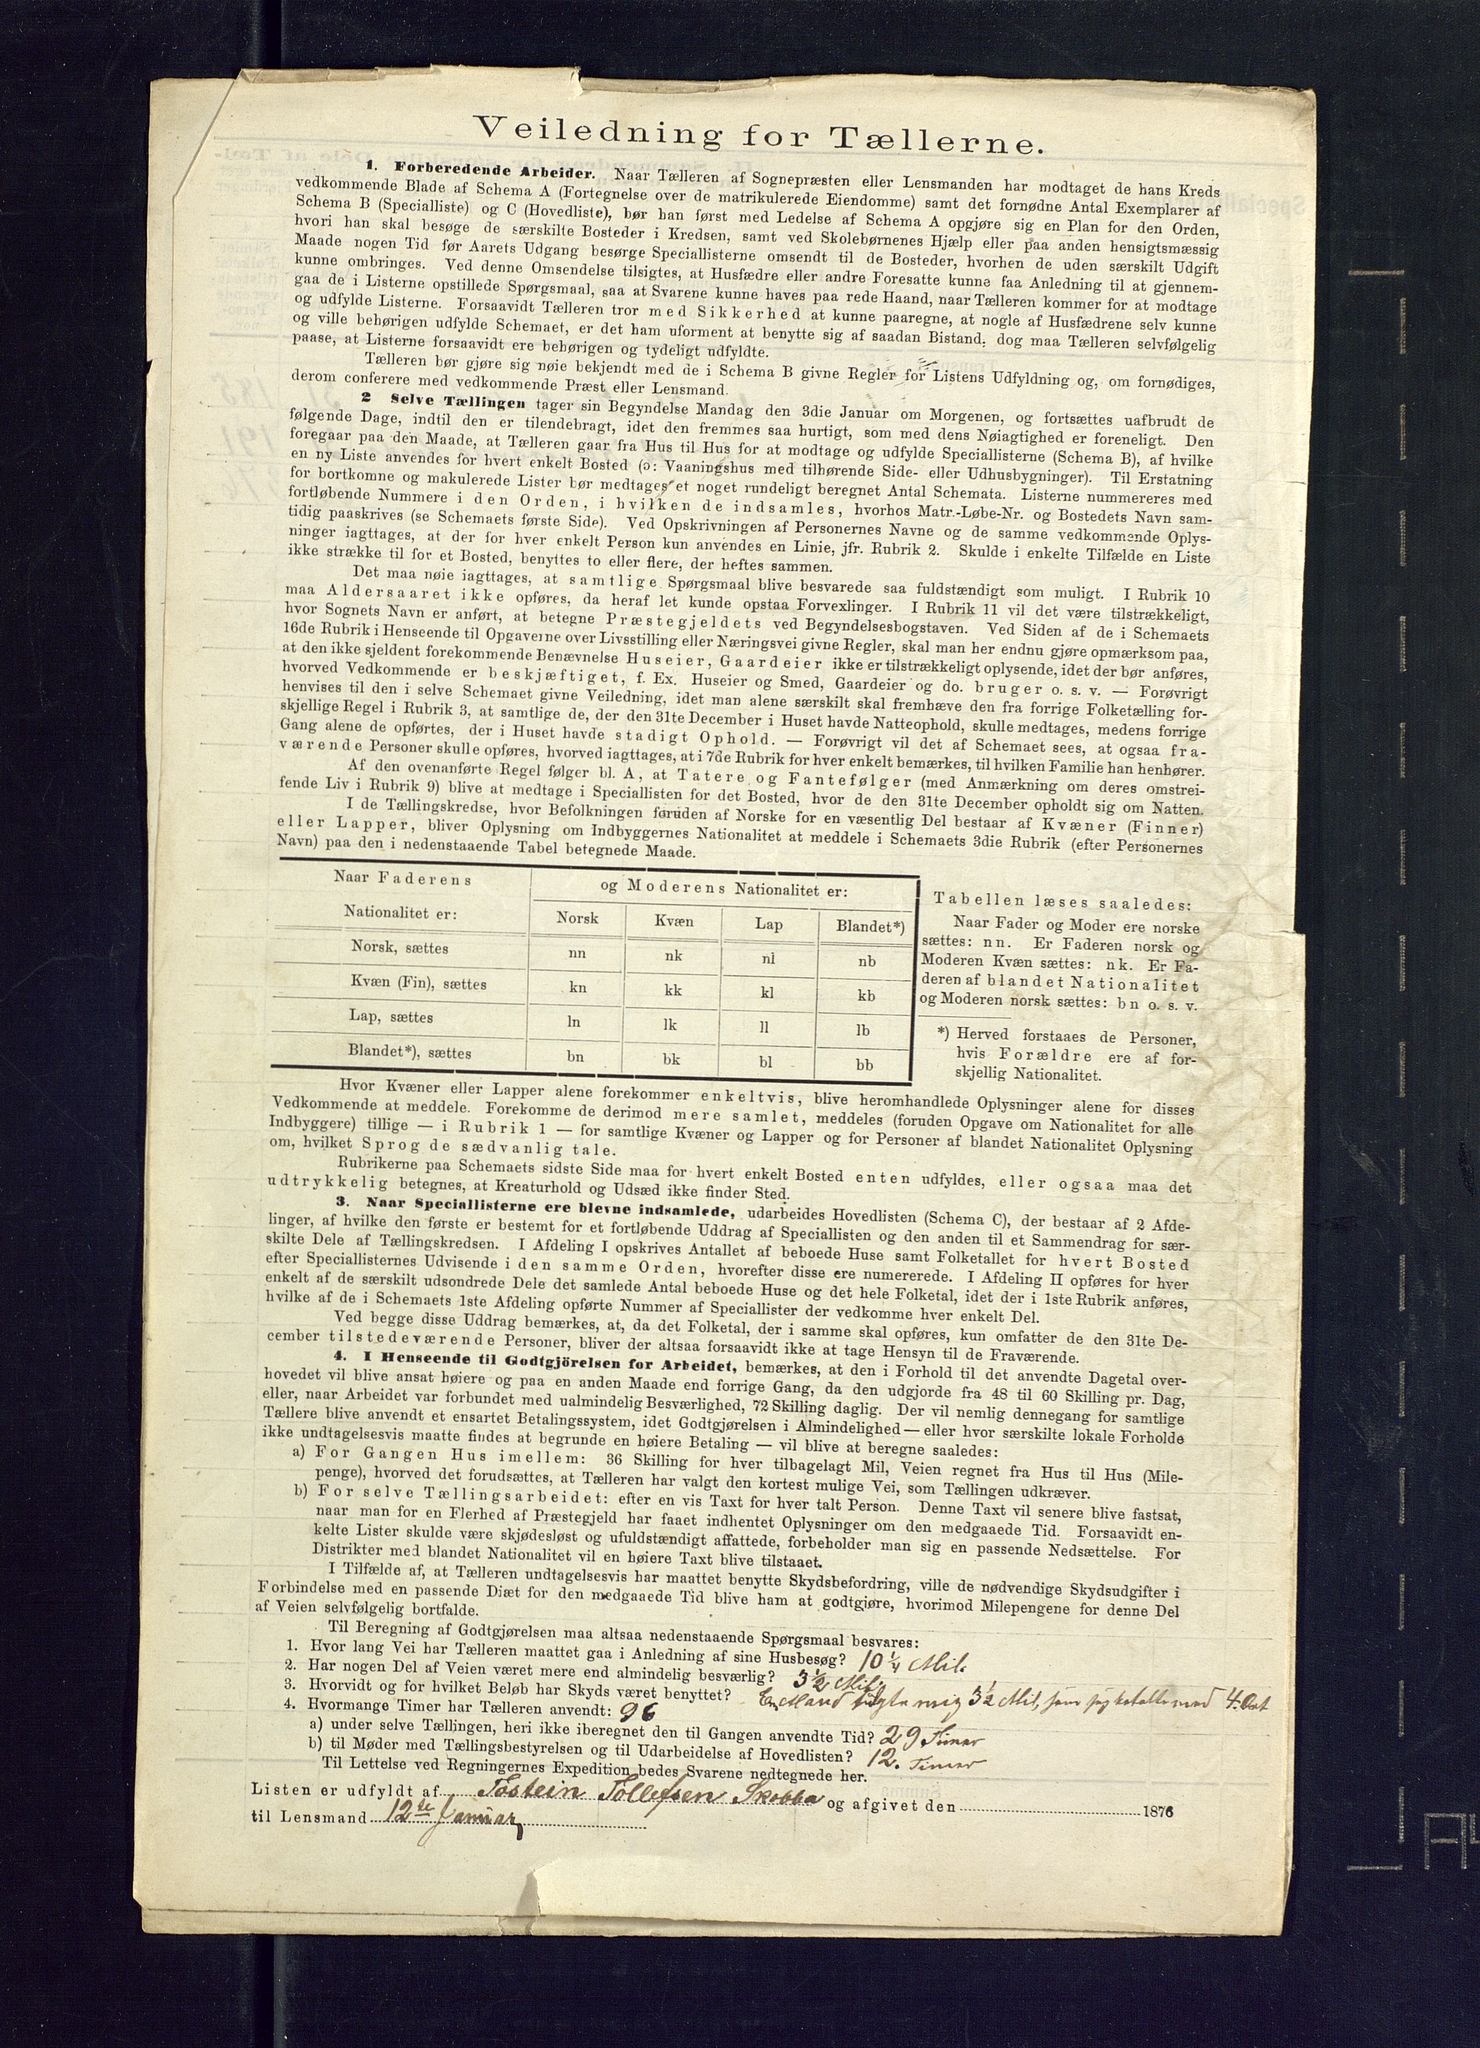 Veiledning for Tællerne.
1. Forberedende Arbeider. Naar Tælleren af Sognepræsten eller Lensmanden har modtaget de hans Kreds
vedkommende Blade af Schema A (Fortegnelse over de matrikulerede Eiendomme) samt det fornødne Antal Exemplarer af
Schema B (Specialliste) og C (Hovedliste), bør han først med Ledelse af Schema A opgjøre sig en Plan for den Orden,
hvori han skal besøge de særskilte Bosteder i Kredsen, samt ved Skolebørnenes Hjælp eller paa anden hensigtsmæssig
Maade nogen Tid før Aarets Udgang besørge Speciallisterne omsendt til de Bosteder, hvorhen de uden særskilt Udgift
kunne ombringes. Ved denne Omsendelse tilsigtes, at Husfædre eller andre Foresatte kunne faa Anledning til at gjennem-
gaa de i Listerne opstillede Spørgsmaal, saa at Svarene kunne haves paa rede Haand, naar Tælleren kommer for at modtage
og udfylde Listerne. Forsaavidt Tælleren tror med Sikkerhed at kunne paaregne, at nogle af Husfædrene selv kunne
og ville behørigen udfylde Schemaet, er det ham uforment at benytte sig af saadan Bistand; dog maa Tælleren selvfølgelig
paase, at Listerne forsaavidt ere behørigen og tydeligt udfyldte.
Tælleren bør gjøre sig nøie bekjendt med de i Schema B givne Regler for Listens Udfyldning og, om fornødiges,
derom conferere med vedkommende Præst eller Lensmand.
2 Selve Tællingen tager sin Begyndelse Mandag den 3die Januar om Morgenen, og fortsættes uafbrudt de
følgende Dage, indtil den er tilendebragt, idet den fremmes saa hurtigt, som med dens Nøiagtighed er foreneligt. Den
foregaar paa den Maade, at Tælleren gaar fra Hus til Hus for at modtage og udfylde Speciallisterne (Schema B), af hvilke
en ny Liste anvendes for hvert enkelt Bosted (ɔ: Vaaningshus med tilhørende Side- eller Udhusbygninger). Til Erstatning
for bortkomne og makulerede Lister bør medtages et noget rundeligt beregnet Antal Schemata. Listerne nummereres med
fortløbende Nummere i den Orden, i hvilken de indsamles, hvorhos Matr.-Løbe-Nr. og Bostedets Navn sam-
tidig paaskrives (se Schemaets første Side). Ved Opskrivningen af Personernes Navne og de samme vedkommende Oplys-
ninger iagttages, at der for hver enkelt Person kun anvendes en Linie, jfr. Rubrik 2. Skulde i enkelte Tilfælde en Liste
ikke strække til for et Bosted, benyttes to eller flere, der heftes sammen.
Det maa nøie iagttages, at samtlige Spørgsmaal blive besvarede saa fuldstændigt som muligt. I Rubrik 10
maa Aldersaaret ikke opføres, da heraf let kunde opstaa Forvexlinger. I Rubrik 11 vil det være tilstrækkeligt,
hvor Sognets Navn er anført, at betegne Præstegjeldets ved Begyndelsesbogstaven. Ved Siden af de i Schemaets
16de Rubrik i Henseende til Opgaverne over Livsstilling eller Næringsvei givne Regler, skal man her endnu gjøre opmærksom paa,
at den ikke sjeldent forekommende Benævnelse Huseier, Gaardeier ikke er tilstrækkeligt oplysende, idet der bør anføres,
hvorved Vedkommende er beskjæftiget, f. Ex. Huseier og Smed, Gaardeier og do. bruger o. s. v. — Forøvrigt
henvises til den i selve Schemaet givne Veiledning, idet man alene særskilt skal fremhæve den fra forrige Folketælling for-
skjellige Regel i Rubrik 3, at samtlige de, der den 31te December i Huset havde Natteophold, skulle medtages, medens forrige
Gang alene de opførtes, der i Huset havde stadigt Ophold. — Forøvrigt vil det af Schemaet sees, at ogsaa fra-
værende Personer skulle opføres, hvorved iagttages, at i 7de Rubrik for hver enkelt bemærkes, til hvilken Familie han henhører.
Af den ovenanførte Regel følger bl. A, at Tatere og Fantefølger (med Anmærkning om deres omstrei-
fende Liv i Rubrik 9) blive at medtage i Speciallisten for det Bosted, hvor de den 31te December opholdt sig om Natten.
I de Tællingskredse, hvor Befolkningen foruden af Norske for en væsentlig Del bestaar af Kvæner (Finner)
eller Lapper, bliver Oplysning om Indbyggernes Nationalitet at meddele i Schemaets 3die Rubrik (efter Personernes
Navn) paa den i nedenstaaende Tabel betegnede Maade.
Naar Faderens og Moderens Nationalitet er:
Nationalitet er: Norsk Kvæn Lap Blandet*)
Norsk, sættes nn nk nl nb
Kvæn (Fin), sættes kn kk kl kb
Lap, sættes ln lk ll lb
Blandet*), sættes bn bk bl bb
Tabellen læses saaledes:
Naar Fader og Moder ere norske
sættes: nn. Er Faderen norsk og
Moderen Kvæn sættes: nk. Er Fa-
deren af blandet Nationalitet
og Moderen norsk sættes: bn o. s. v.
*) Herved forstaaes de Personer,
hvis Forældre ere af for-
skjellig Nationalitet.
Hvor Kvæner eller Lapper alene forekommer enkeltvis, blive heromhandlede Oplysninger alene for disses
Vedkommende at meddele. Forekomme de derimod mere samlet, meddeles (foruden Opgave om Nationalitet for alle
Indbyggere) tillige — i Rubrik 1 — for samtlige Kvæner og Lapper og for Personer af blandet Nationalitet Oplysning
om, hvilket Sprog de sædvanlig tale.
Rubrikerne paa Schemaets sidste Side maa for hvert enkelt Bosted enten udfyldes, eller ogsaa maa det
udtrykkelig betegnes, at Kreaturhold og Udsæd ikke finder Sted.
3. Naar Speciallisterne ere blevne indsamlede, udarbeides Hovedlisten (Schema C), der bestaar af 2 Afde-
linger, af hvilke den første er bestemt for et fortløbende Uddrag af Speciallisten og den anden til et Sammendrag for sær-
skilte Dele af Tællingskredsen. I Afdeling I opskrives Antallet af beboede Huse samt Folketallet for hvert Bosted
efter Speciallisternes Udvisende i den samme Orden, hvorefter disse ere numererede. I Afdeling II opføres for hver
enkelt af de særskilt udsondrede Dele det samlede Antal beboede Huse og det hele Folketal, idet der i 1ste Rubrik anføres,
hvilke af de i Schemaets 1ste Afdeling opførte Nummer af Speciallister der vedkomme hver enkelt Del.
Ved begge disse Uddrag bemærkes, at, da det Folketal, der i samme skal opføres, kun omfatter de den 31te De-
cember tilstedeværende Personer, bliver der altsaa forsaavidt ikke at tage Hensyn til de Fraværende.
4. I Henseende til Godtgjörelsen for Arbeidet, bemærkes, at den i Forhold til det anvendte Dagetal over-
hovedet vil blive ansat høiere og paa en anden Maade end forrige Gang, da den udgjorde fra 48 til 60 Skilling pr. Dag,
eller, naar Arbeidet var forbundet med ualmindelig Besværlighed, 72 Skilling daglig. Der vil nemlig dennegang for samtlige
Tællere blive anvendt et ensartet Betalingssystem, idet Godtgjørelsen i Almindelighed — eller hvor særskilte lokale Forholde
ikke undtagelsesvis maatte findes at begrunde en høiere Betaling — vil blive at beregne saaledes:
a) For Gangen Hus imellem: 36 Skilling for hver tilbagelagt Mil, Veien regnet fra Hus til Hus (Mile-
penge), hvorved det forudsættes, at Tælleren har valgt den kortest mulige Vei, som Tællingen udkræver.
b) For selve Tællingsarbeidet: efter en vis Taxt for hver talt Person. Denne Taxt vil senere blive fastsat,
naar man for en Flerhed af Præstegjeld har faaet indhentet Oplysninger om den medgaaede Tid. Forsaavidt en-
kelte Lister skulde være skjødesløst og ufuldstændigt affattede, forbeholder man sig en passende Nedsættelse. For
Distrikter med blandet Nationalitet vil en høiere Taxt blive tilstaaet.
I Tilfælde af, at Tælleren undtagelsesvis har maattet benytte Skydsbefordring, ville de nødvendige Skydsudgifter i
Forbindelse med en passende Diæt for den medgaaede Tid blive ham at godtgiøre, hvorimod Milepengene for denne Del
af Veien selvfølgelig bortfalde.
Til Beregning af Godtgjørelsen maa altsaa nedenstaaende Spørgsmaal besvares:
1. Hvor lang Vei har Tælleren maattet gaa i Anledning af sine Husbesøg? 10 1/4 Mil.
2. Har nogen Del af Veien været mere end almindelig besværlig? 3 1/2 Mil.
3. Hvorvidt og for hvilket Beløb har Skyds været benyttet? En Mand mig 3 1/2 Mil, som jeg betalte med 4. Ort
4. Hvormange Timer har Tælleren anvendt: 96
a) under selve Tællingen, heri ikke iberegnet den til Gangen anvendte Tid? 29 Timer
b) til Møder med Tællingsbestyrelsen og til Udarbeidelse af Hovedlisten? 12. Timer
Til Lettelse ved Regningernes Expedition bedes Svarene nedtegnede her.
Listen er udfyldt af Tostein Tollefsen Skobba og afgivet den 1876
til Lensmand 12te Januar